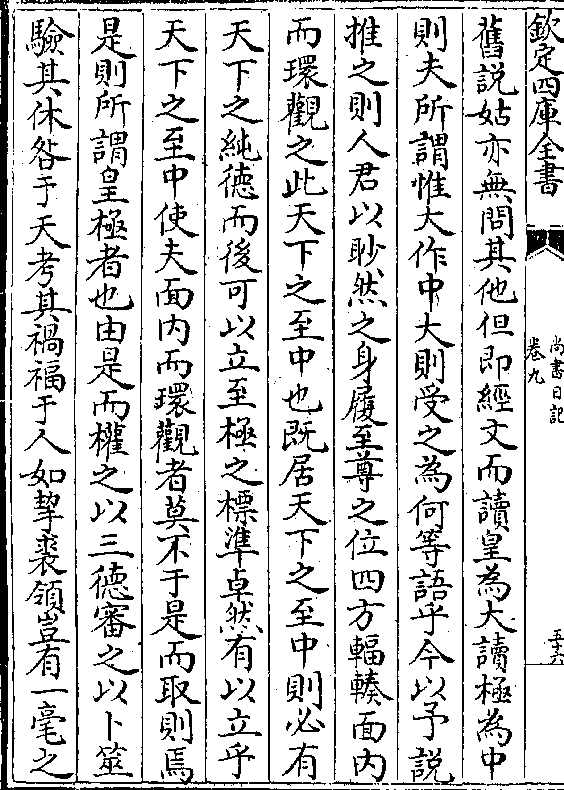 欽定四庫全書
尚書日記
卷九
五十六
舊説姑亦無問其他但即經文而讀皇為大讀極為中
則夫所謂惟大作中大則受之為何等語乎今以予説
推之則人君以眇然之身履至尊之位四方輻輳面内
而環觀之此天下之至中也既居天下之至中則必有
天下之純德而後可以立至極之標準卓然有以立乎
天下之至中使夫面内而環觀者莫不于是而取則焉
是則所謂皇極者也由是而權之以三德審之以卜筮
驗其休咎于天考其禍福于人如挈裘領豈有一毫之